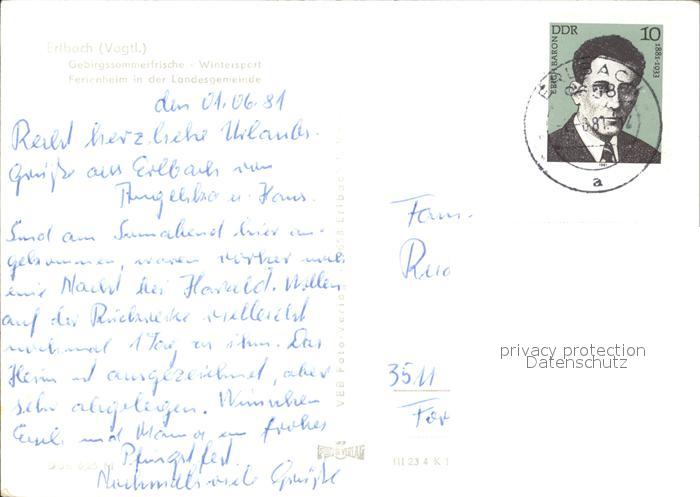 Erlbach (Vogtl.)
Gebirgssommerfrische - Wintersport
Ferienheim in der Landesgemeinde
den 01.06.81
Recht herzliche Urlaubs-
grüße aus Erlbach von
u. Hans.
Sind am Sonnabend hier an-
gekommen, waren vorher noch
eine Nacht bei Harald. Wollen
auf der Rückreise vielleicht
nochmal 1 Tag zu ihm. Das
Heim ist ausgezeichnet, aber
sehr abgelegen. Wünschen
Euch und Mama ein frohes
Pfingstfest.
Nochmals viele Grüße
VEB Foto-Verlag Erlbach
Fam.
3511
III 23 4 K 1
DDR 10
ERICH BARON
1881-1933
ERLBACH
a
privacy protection
Datenschutz